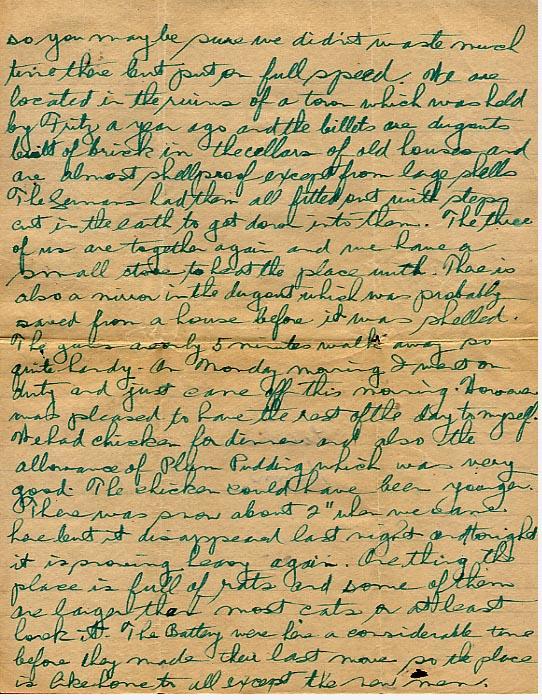 so you may be sure we didn't waste much
time there but put on full speed. We are
located in the ruins of a town which was held
by Fritz a year ago and the billets are dugouts
built of brick in the cellars of old houses and
are almost shellproof except from large shells
The Germans had them all fitted out with steps
cut in the earth to get down into them. The three
of us are together again and we have a
small stove to heat the place with. There is
also a mirror in the dugout which was probably
saved from a house before it was shelled.
The guns are only 5 minutes walk away so
quite handy. On Monday morning I went on
duty and just came off this morning. However
was pleased to have the rest of the day to myself.
We had chicken for dinner and also the
allowance of Plum Pudding which was very
good. The chicken could have been younger.
There was snow about 2" when we came
here but it disappeared last night and tonight
it is snowing heavy again. One thing the
place is full of rats and some of them
are larger than most cats or at least
look it. The Battery were here a considerable time
before they made their last move so the place
is like home to all except the new men.